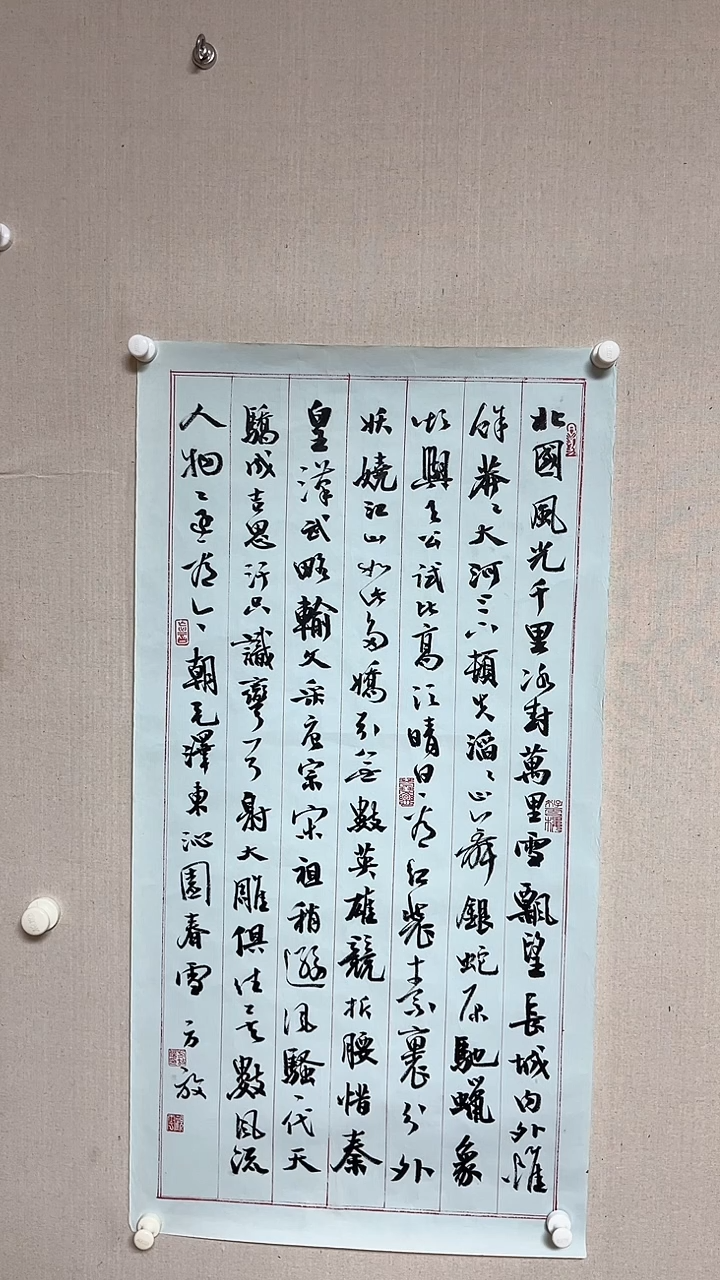 北國風光千里冰封萬里雪飄望長城内外惟
餘莽〻大河上下頓失滔〻山舞銀蛇原馳蠟象
欲與天公試比高須晴日看紅裝素裹分外
妖嬈江山如此多嬌引無數英雄競折腰惜秦
皇漢武略輸文采唐宗宋祖稍遜風騷一代天
驕成吉思汗只識彎弓射大雕俱往矣數風流
人物還看今朝毛澤東沁園春雪 方放